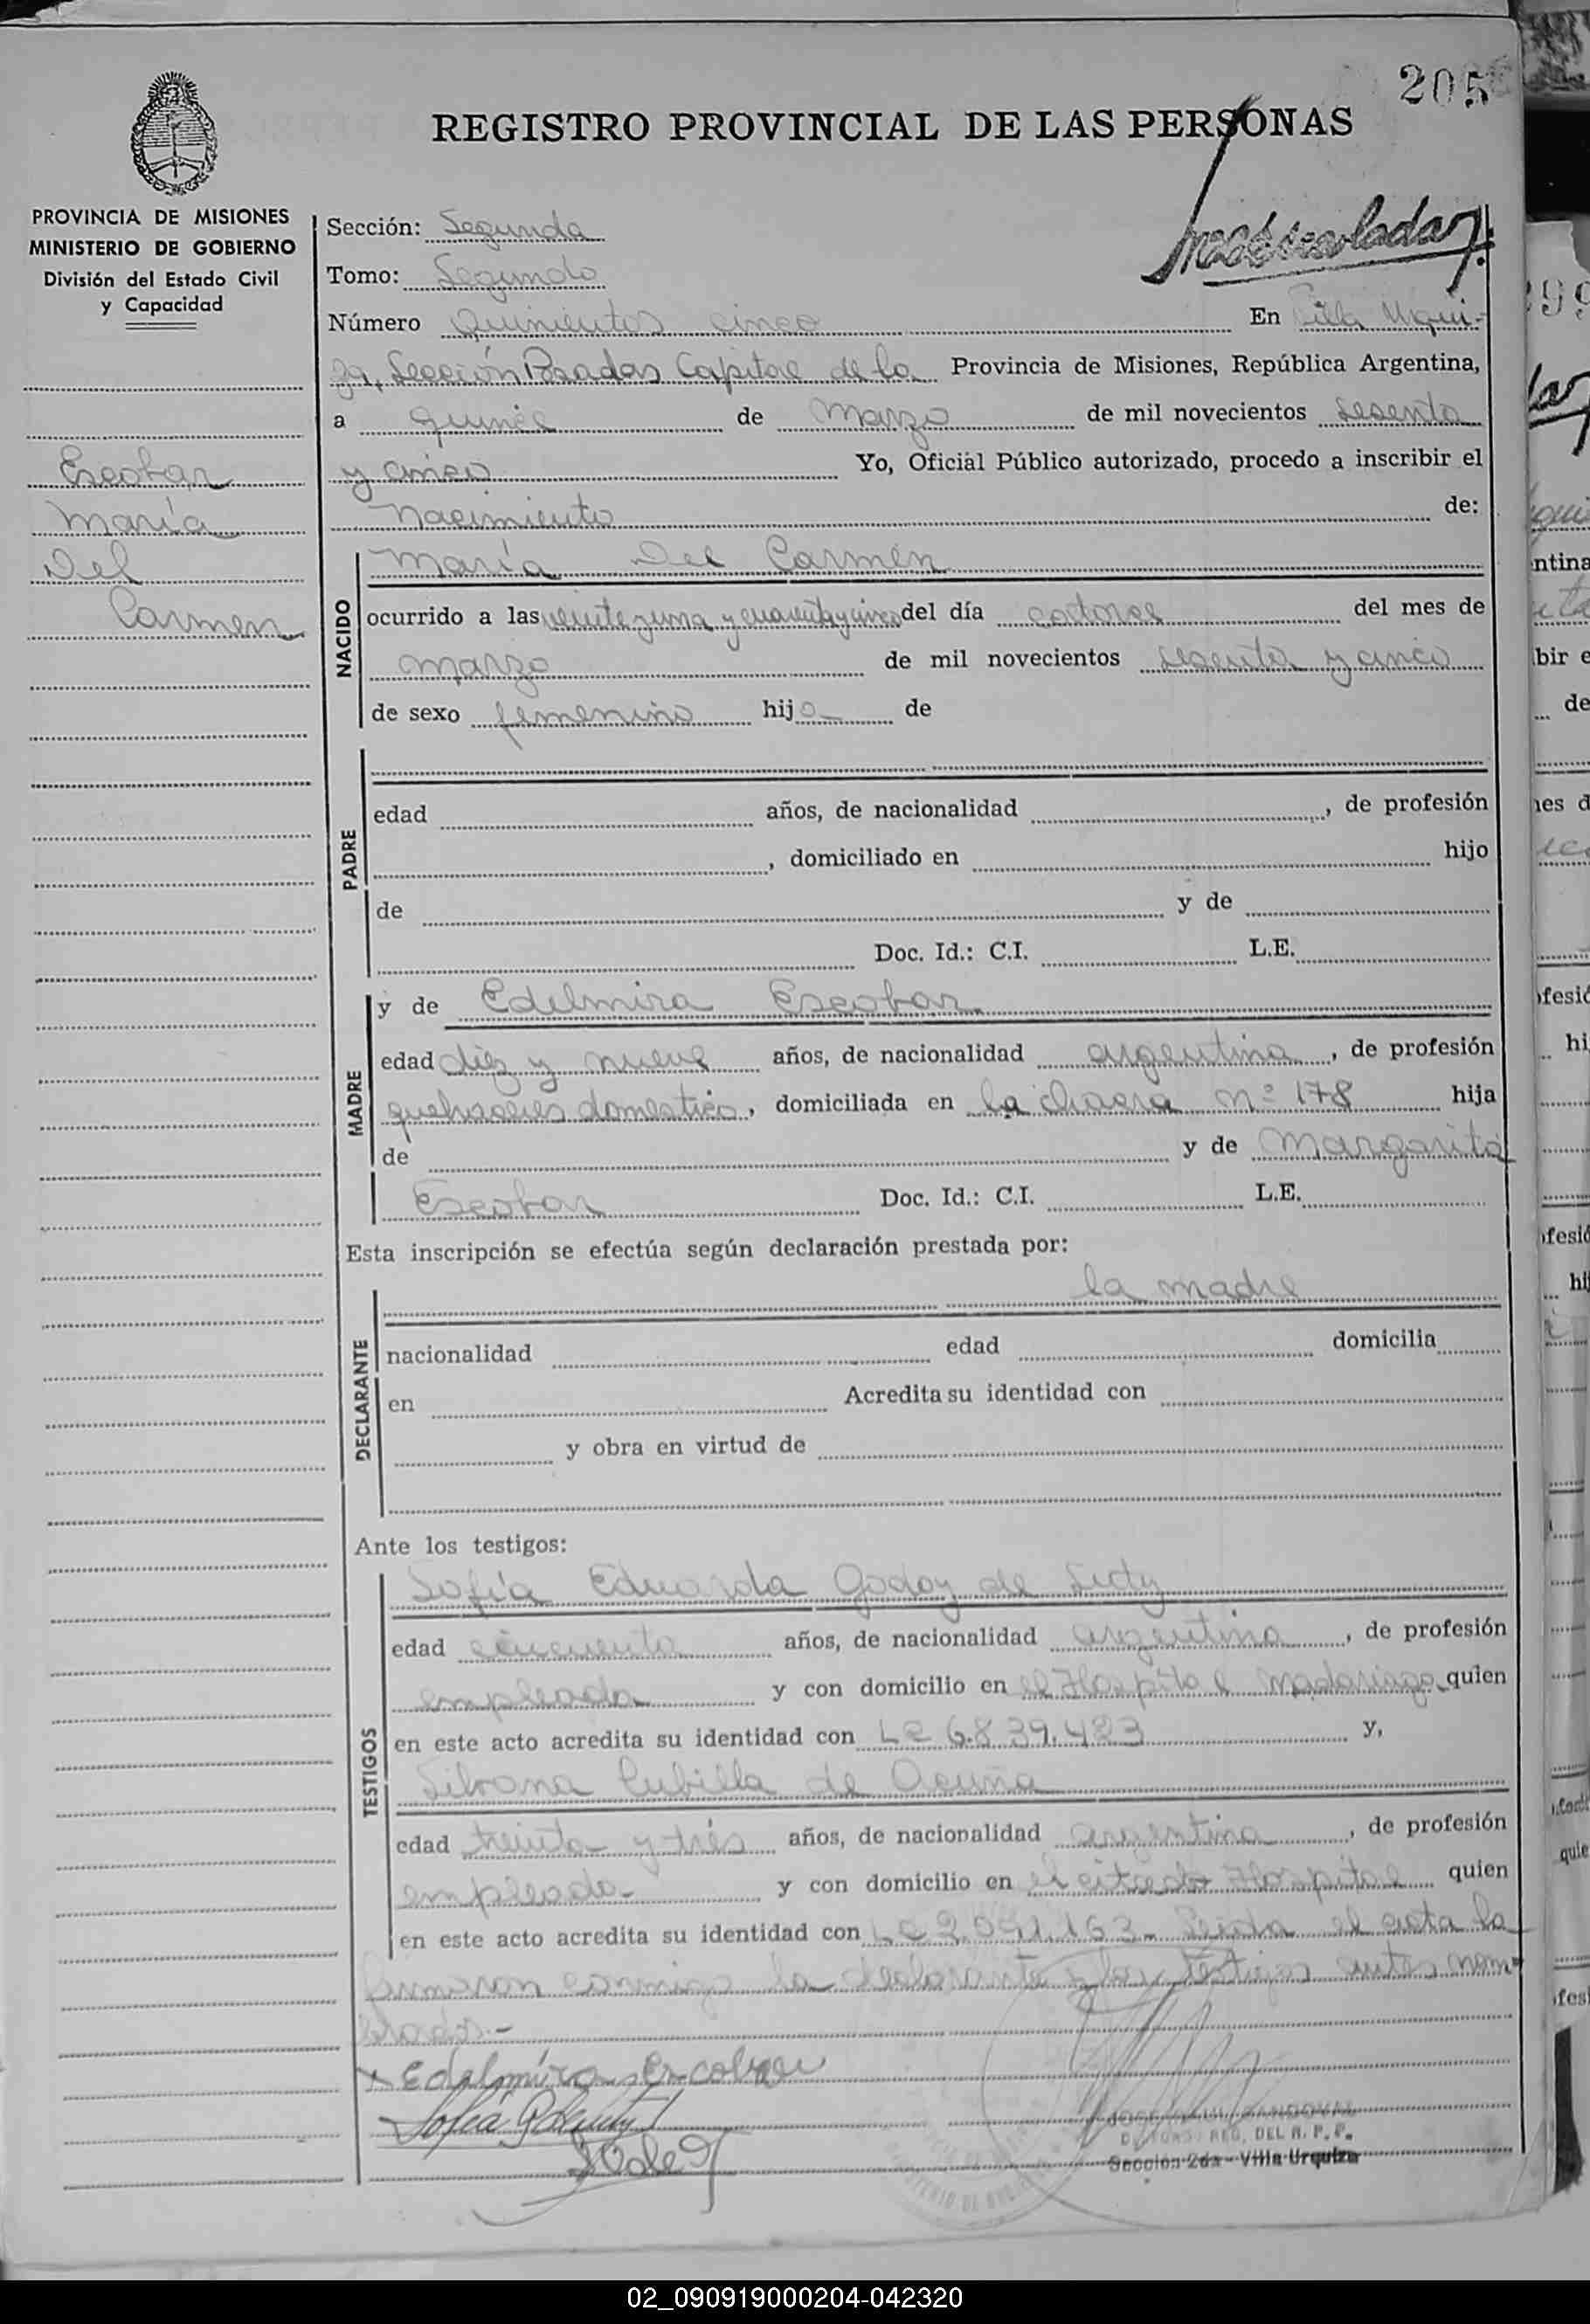 205
REGISTRO PROVINCIAL DE LAS PERSONAS
PROVINCIA DE MISIONES
MINISTERIO DE GOBIERNO
División del Estado Civil
y Capacidad
Escobar
María
Del
Carmen
Sección: Segunda
Tomo: Segundo
Número Quinientos cinco En Villa Urqui-
za, Sección Posadas Capital de la Provincia de Misiones, República Argentina,
a quince de marzo de mil novecientos sesenta
y cinco Yo, Oficial Público autorizado, procedo a inscribir el
nacimiento de:
NACIDO
María Del Carmen
ocurrido a las veinte y una y cuarenta y cinco del día catorce del mes de
marzo de mil novecientos sesenta y cinco
de sexo femenino hija de
PADRE
edad años, de nacionalidad , de profesión
, domiciliado en hijo
de y de
Doc. Id.: C.I. L.E.
MADRE
y de Edelmira Escobar
edad diez y nueve años, de nacionalidad argentina, de profesión
quehaceres domestico, domiciliada en la chacra nº 178 hija
de y de Margarita
Escobar Doc. Id.: C.I. L.E.
Esta inscripción se efectúa según declaración prestada por:
la madre
DECLARANTE
nacionalidad edad domicilia
en Acredita su identidad con
y obra en virtud de
Ante los testigos:
TESTIGOS
Sofía Eduarda Godoy de
edad cincuenta años, de nacionalidad argentina, de profesión
empleada y con domicilio en el Hospital Madariaga quien
en este acto acredita su identidad con LC 6.839.423 y,
Silvana Cubilla de Acuña
edad treinta y tres años, de nacionalidad argentina, de profesión
empleada y con domicilio en el citado Hospital quien
en este acto acredita su identidad con LC 2.091.163- Leida el acta la
firmaron conmigo la declarante y los testigos antes nom-
brados.-
Edelmira Escobar
REG. DEL R. P. P.
Sección 2da - Villa Urquiza
02_090919000204-042320